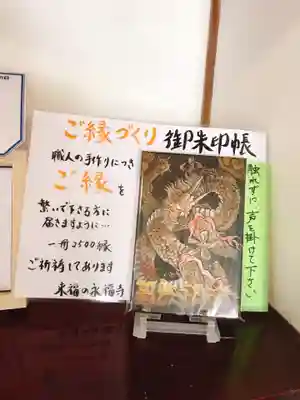 ご縁づくり 御朱印帳
職人の手作りにつき
ご縁を
繋いで下さる方に
届きますように…
一冊2500縁
ご祈祷してあります
来福の永福寺
触れずに声を掛けて下さい